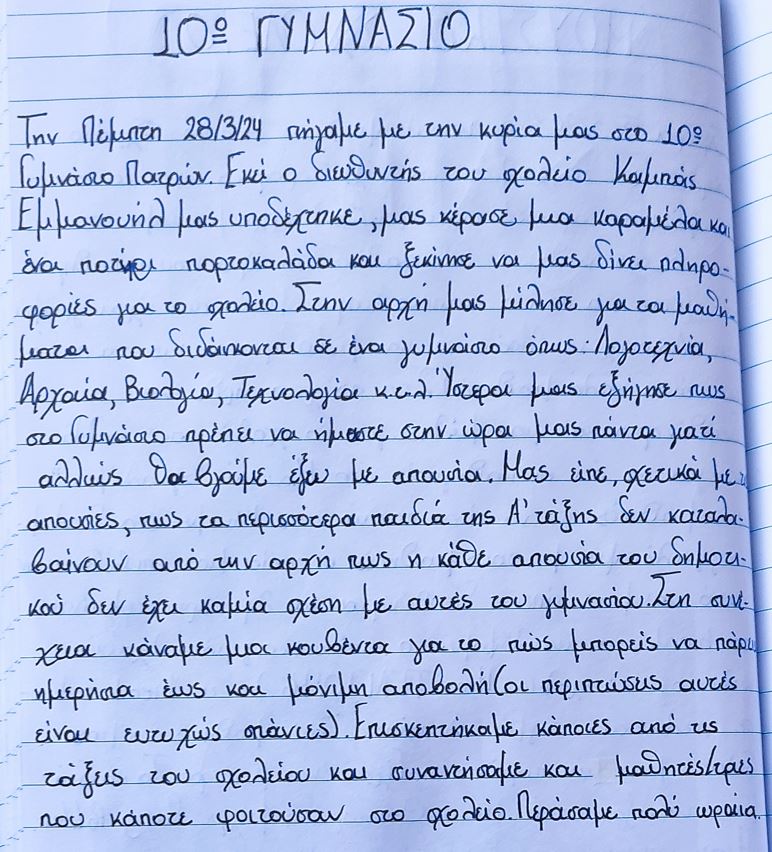 10º ΓΥΜΝΑΣΙΟ
Την Πέμπτη 28/3/24 πήγαμε με την κυρία μας στο 10º
Γυμνάσιο Πατρών. Εκεί ο διευθυντής του σχολείο Καμπάς
Εμμανουήλ μας υποδέχτηκε, μας κέρασε μια καραμέλα και
ένα ποτήρι πορτοκαλάδα και ξεκίνησε να μας δίνει πληρο-
φορίες για το σχολείο. Στην αρχή μας μίλησε για τα μαθή-
ματα που διδάσκονται σε ένα γυμνάσιο όπως: Λογοτεχνία,
Αρχαία, Βιολογία, Τεχνολογία κ.τ.λ. Ύστερα μας εξήγησε πως
στο Γυμνάσιο πρέπει να ήμαστε στην ώρα μας πάντα γιατί
αλλιώς θα βγούμε έξω με απουσία. Μας είπε, σχετικά με
απουσίες, πως τα περισσότερα παιδιά της Α' τάξης δεν καταλα-
βαίνουν από την αρχή πως η κάθε απουσία του δημοτι-
κού δεν έχει καμία σχέση με αυτές του γυμνασίου. Στη συνέ-
χεια κάναμε μια κουβέντα για το πώς μπορείς να πάρει
ημερήσια έως και μόνιμη αποβολή (οι περιπτώσεις αυτές
είναι ευτυχώς σπάνιες). Επισκεπτήκαμε κάποιες από τις
τάξεις του σχολείου και συναντήσαμε και μαθητές/τριες
που κάποτε φοιτούσαν στο σχολείο. Περάσαμε πολύ ωραία.